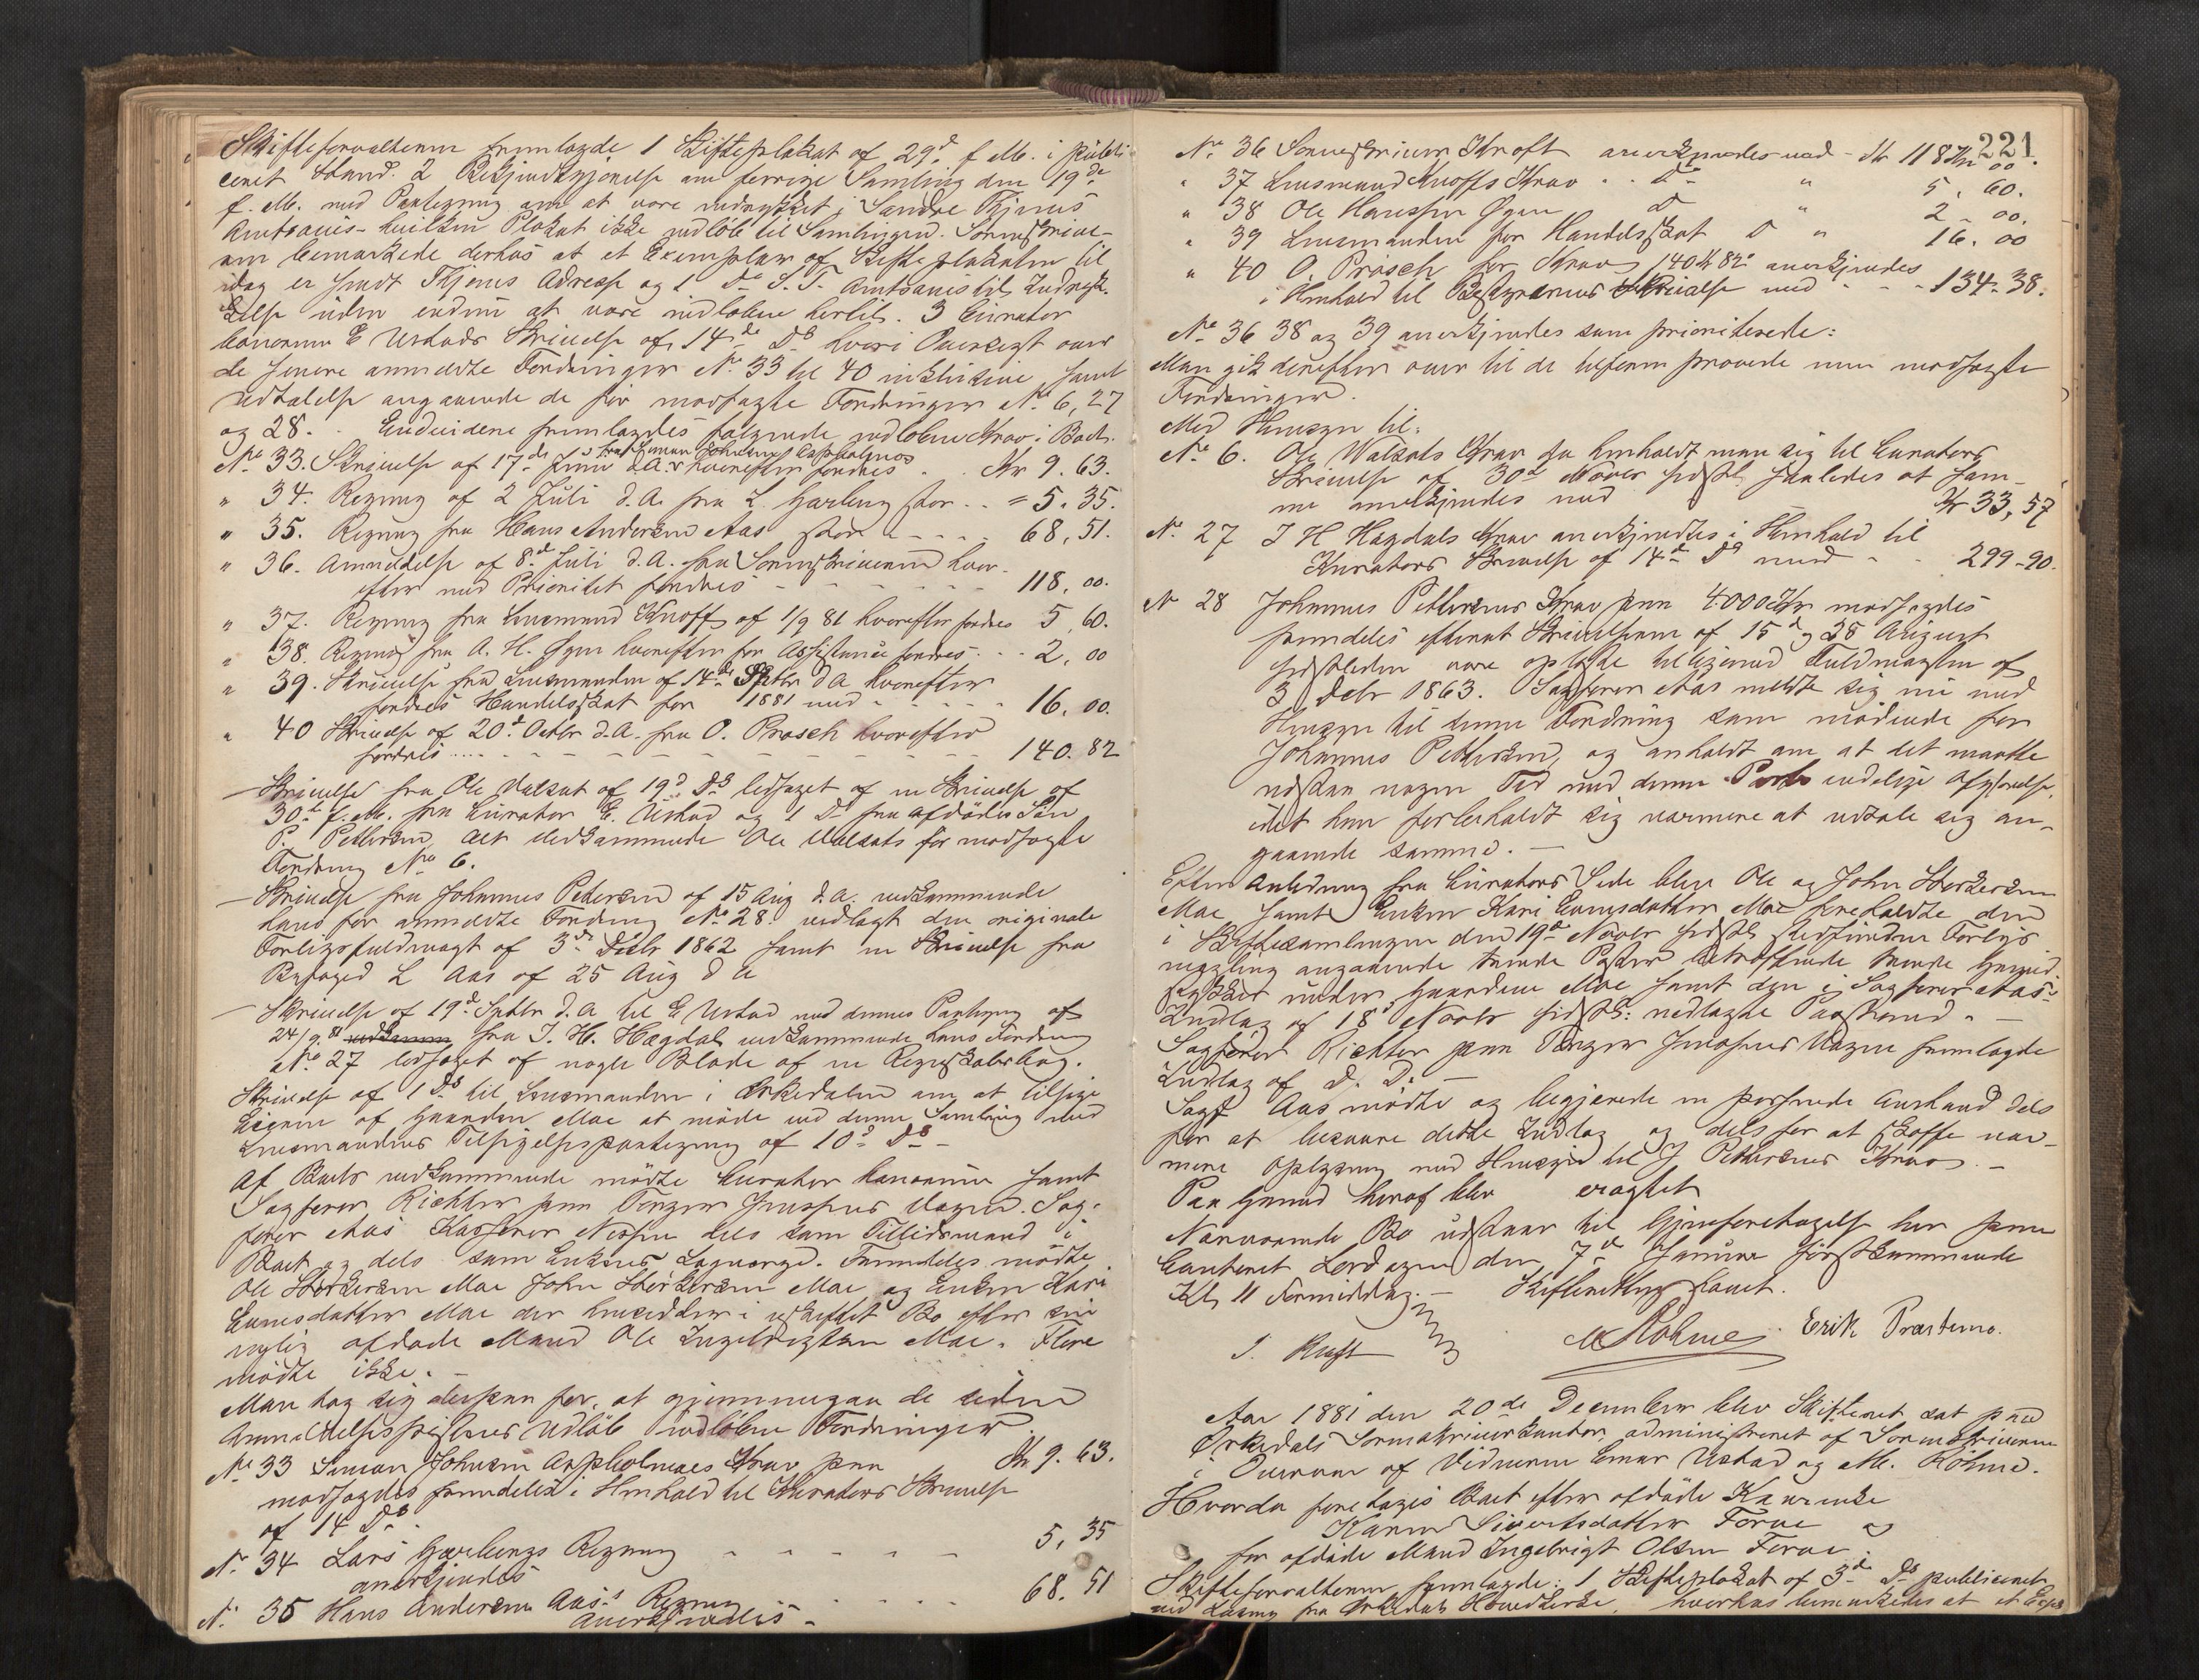 Skifteforvalteren fremlagde 1 Skifteplakat af 29d f. M. i publi-
ceret Stand. 2 Bekjendtgjørelse om forrige Samling den 19de
f. M. med Paategning om at være indrykket i Søndre Thjems
Amtsavis - hvilken Plakat ikke indløb til Samlingen. Sorenskrive-
ren bemærkede derhos at et Exemplar af Skifteplakaten til
idag er sendt Thjems Adresse og 1 Do S. T. Amtsavis til Indryk-
kelse uden endnu at være indløbne hertil. 3 Curator
bonorum E Ustads Skrivelse af 14de Ds hvori Oversigt over
de senere anmeldte Fordringer No 33 til 40 inklusive, samt
Udtalelse angaaende de før modsagte Fordringer No 6, 27
og 28. Endvidere fremlagdes følgende indløbne Krav i Boet.
No 33. Skrivelse af 17de Juni d.A. fra Simon Johnsen Aspholmoes hvorefter fordres . Kr 9.63.
" 34. Regning af 2 Juli d.A. fra L. Garberg stor .. = 5.35.
" 35. Regning fra Hans Andersen Aas stor - - - - 68,51.
" 36. Anmeldelse af 8d Juli d.A. fra Sorenskriveren hvor-
efter med Prioritet fordres - - - - - - 118,00.
" 37. Regning fra Lensmand Knoff af 1/9 81 hvorefter fordres 5,60.
" 38. Regning fra A. H. Øyen hvorefter for Assistance fordres .. 2,00
" 39. Skrivelse fra Lensmanden af 14de Septbr d A hvorefter
fordres Handelsskat for 1881 med - - - - - 16.00.
" 40 Skrivelse af 20d Octbr d.A. fra O. Prøsch hvorefter
fordres .... - - - - - - - - 140.82
- Skrivelse fra Ole Walsat af 19d Ds ledsaget af en Skrivelse af
30te f.M. fra Curator E. Ustad og 1 Do fra Afdødes Søn
P. Pettersen alt vedkommende Ole Walsats før modsagte
Fordring No 6.
- Skrivelse fra Johannes Petersen af 15 Aug d.A. vedkommende
hans før anmeldte Fordring No 28 vedlagt den originale
Forligsfuldmagt af 3de Debr 1862 samt en Skrivelse fra
L Aas af 25 Aug d A
- Skrivelse af 19d Sptbr d.A til E Ustad med dennes Paategning af
24/9 81 vedkomm fra I. H. Hagdal vedkommende hans Fordring
No 27 ledsaget af nogle Blade af en Regnskabsbog.
Skrivelse af 1 Ds til Lensmanden i Orkedalen om at tilsige
Eierne af Gaarden Moe at møde ved denne Samling med
Lensmandens Tilsigelsespaategning af 10d Ds -
Af Boets vedkommende mødte Curator bonorum samt
Sagfører Richter paa Tønger Jenssens Vegne. Sag-
fører Aas Kasserer Nissen dels som Tillidsmand i
Boet og dels som Enkens Lagværge. Fremdeles mødte
Ole Størkersen Moe John Størkersen Moe og Enken Kari
Evensdatter Moe der hensidder i uskiftet Bo efter sin
nylig afdøde Mand Ole Ingebrigtsen Moe. Flere
mødte ikke.
Man tog sig dessaa for, at gjennemgaa de siden
Anmeldelsesfristens Udløb indløbne Fordringer
No 33 Simon Johnsen Aspholmoes Krav paa Kr 9.63.
modsagdes fremdeles i Henhold til Kurators Skrivelse
af 14 Ds.
No 34 Lars Garbergs Regning - - - - - 5,35
anerkjendes
No 35 Hans Andersen Aas's Regning . . . . 68.51
anerkjendes -
221.
No 36 Sorenskriver Kraft anerkjendes med - Kr 118 Kr 00
" 37 Lensmand Knoffs Krav .. Do " 5,60.
" 38 Ole Hanssen Øyen D " 2-00.
" 39 Lensmanden for Handelsskat D " 16.00
" 40 O. Prøsch for Krav 140 Kr 82 anerkjendes
i Henhold til Bestyrerens Skrivelse med - - - 134-38.
No 36 38 og 39 anerkjendes som prioriterede:
Man gik derefter over til de tilforn prøvede men modsagte
Fordringer.
Med Hensyn til:
No 6. Ole Walsats Krav da henholdt man sig til Curators
Skrivelse af 30te Novbr sidstl. saaledes at sam-
me anerkjendes med Kr 33,57
No 27 I H Hagdals Krav anerkjendtes i Henhold til
Kurators Skrivelse af 14de Ds med - - 299-90.
No 28 Johannes Pettersens Krav paa 4000 Kr modsagdes
fremdeles efterat Skrivelserne af 15d og 25 August
sidstleden vare oplæste tilligemed Fuldmagten af
3 Debr 1863. Sagfører Aas meldte sig nu med
Hensyn til denne Fordring som mødende for
Johannes Pettersen, og anholdt om at det maatte
udstaa nogen Tid med denne Posts endelige Afgjørelse,
idet han forbeholdt sig nærmere at udtale sig an-
gaaende samme. -
Efter Anledning fra Curators Side blev Ole og John Størkersen
Moe samt Enken Kari Evensdatter Moe foreholdte den
i Skiftesamlingen den 19de Novbr sidstl. stedfundne Forligs
mægling angaaende tvende Poster betræffende tvende Grund-
stykker under Gaarden Moe samt den i Sagfører Aas's
Indlæg af 18 Novbr sidstl: nedlagte Paastand. -
Sagfører Richter paa Tønger Jenssens Vegne fremlagde
Indlæg af D. D. -
Sagf Aas mødte og begjærede en passende Anstand dels
for at besvare dette Indlæg og dels for at skaffe nær-
mere Oplysning med Hensyn til J Pettersens Krav. -
Paa Grund heraf blev eragtet
Nærværende Bo udstaar til Gjenforetagelse her paa
Contoret Lørdagen den 7de Januar førstkommende
Kl. 11 Formiddag. - Skifteretten hævet.
I. Kraft M Røhme Erik Præstmo.
Aar 1881 den 20de December blev Skifteret sat paa
Ørkedals Sorenskriverkontor, administreret af Sorenskriveren
i Overvær af Vidnerne Einar Ustad og M. Røhme.
Hvorda foretages Boet efter afdøde Kaarenke
Karen Sivertsdatter Forve og
før afdøde Mand Ingebrigt Olsen Forve.
Skifteforvalteren fremlagde: 1 Skifteplakat af 3de Ds publiceret
ved Læsning fra Orkedals Hovedkirke, hvorhos bemærkedes at et Expl